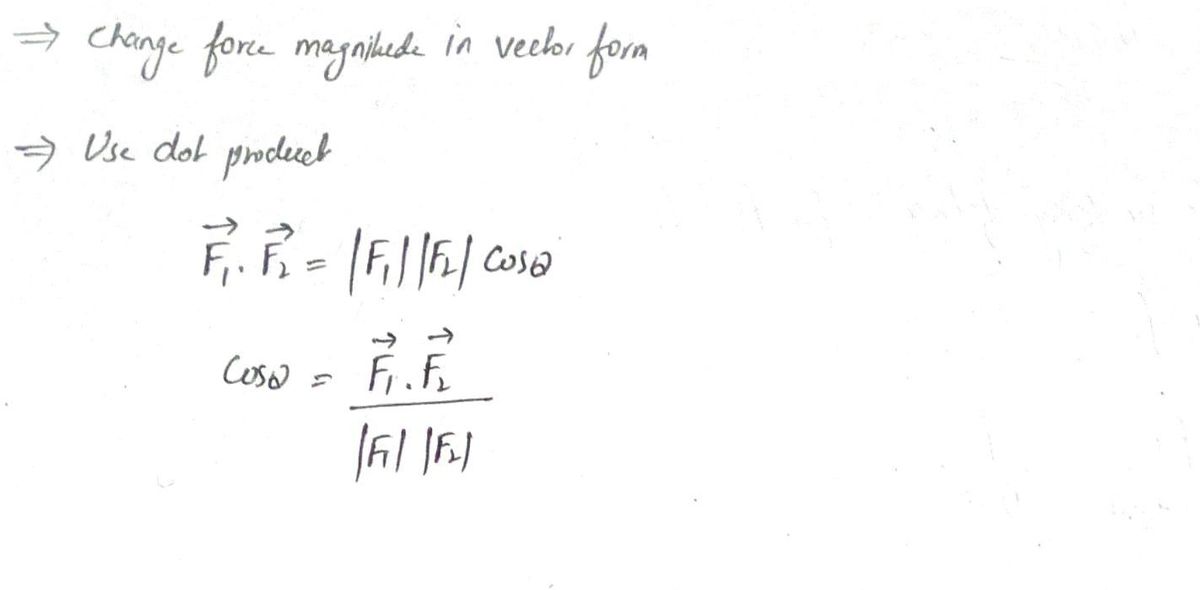 ⇒ Change force magnitude in vector form
⇒ Use dot product
$\vec{F_1} \cdot \vec{F_2} = |F_1| |F_2| \cos\theta$
$\cos\theta = \frac{\vec{F_1} \cdot \vec{F_2}}{|F_1| |F_2|}$